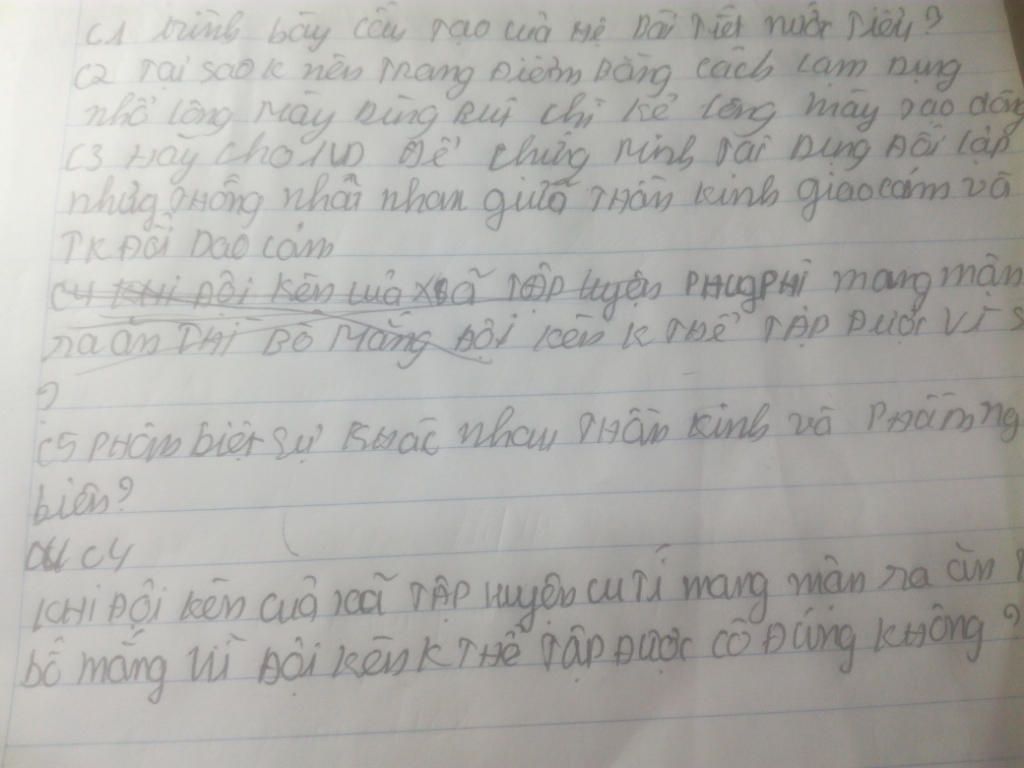 C1 trình bày cấu tạo của Hệ Bài Tiết nước Tiểu?
C2 Tại sao k nên Trang Điểm Bằng cách Lạm Dụng
nhổ lông Mày Dùng Bút chì kẻ lông mày dao động
C3 Hãy cho 1VD để chứng minh Tác Dụng Đối lập
nhưng thống nhất nhau giữa Thần kinh giao cảm và
TK Đối Dao cảm
C4 KHi Đội kèn của xã Tập luyện PHugPHì mang mận
ra ăn THì Bô Mắng Đội kèn k THể TẬP ĐƯợC VÌ S
?
C5 PHân biệt sự KHác nhau THần kinh và
biên?
C4
KHi Đội kèn của xã TẬP luyện CUTí mang mận ra ăn
bô mắng Vì Đội kèn k THể TẬP ĐƯợC Cô Đúng KHông?